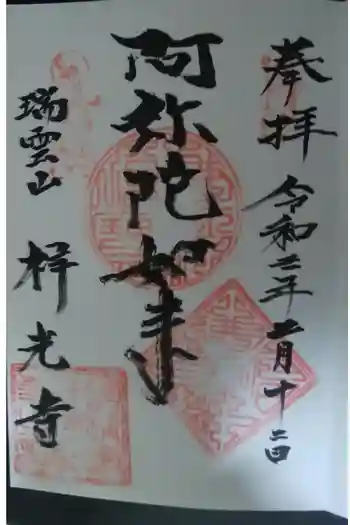 奉拝
令和二年二月十二日
阿弥陀如来
瑞雲山
梓光寺